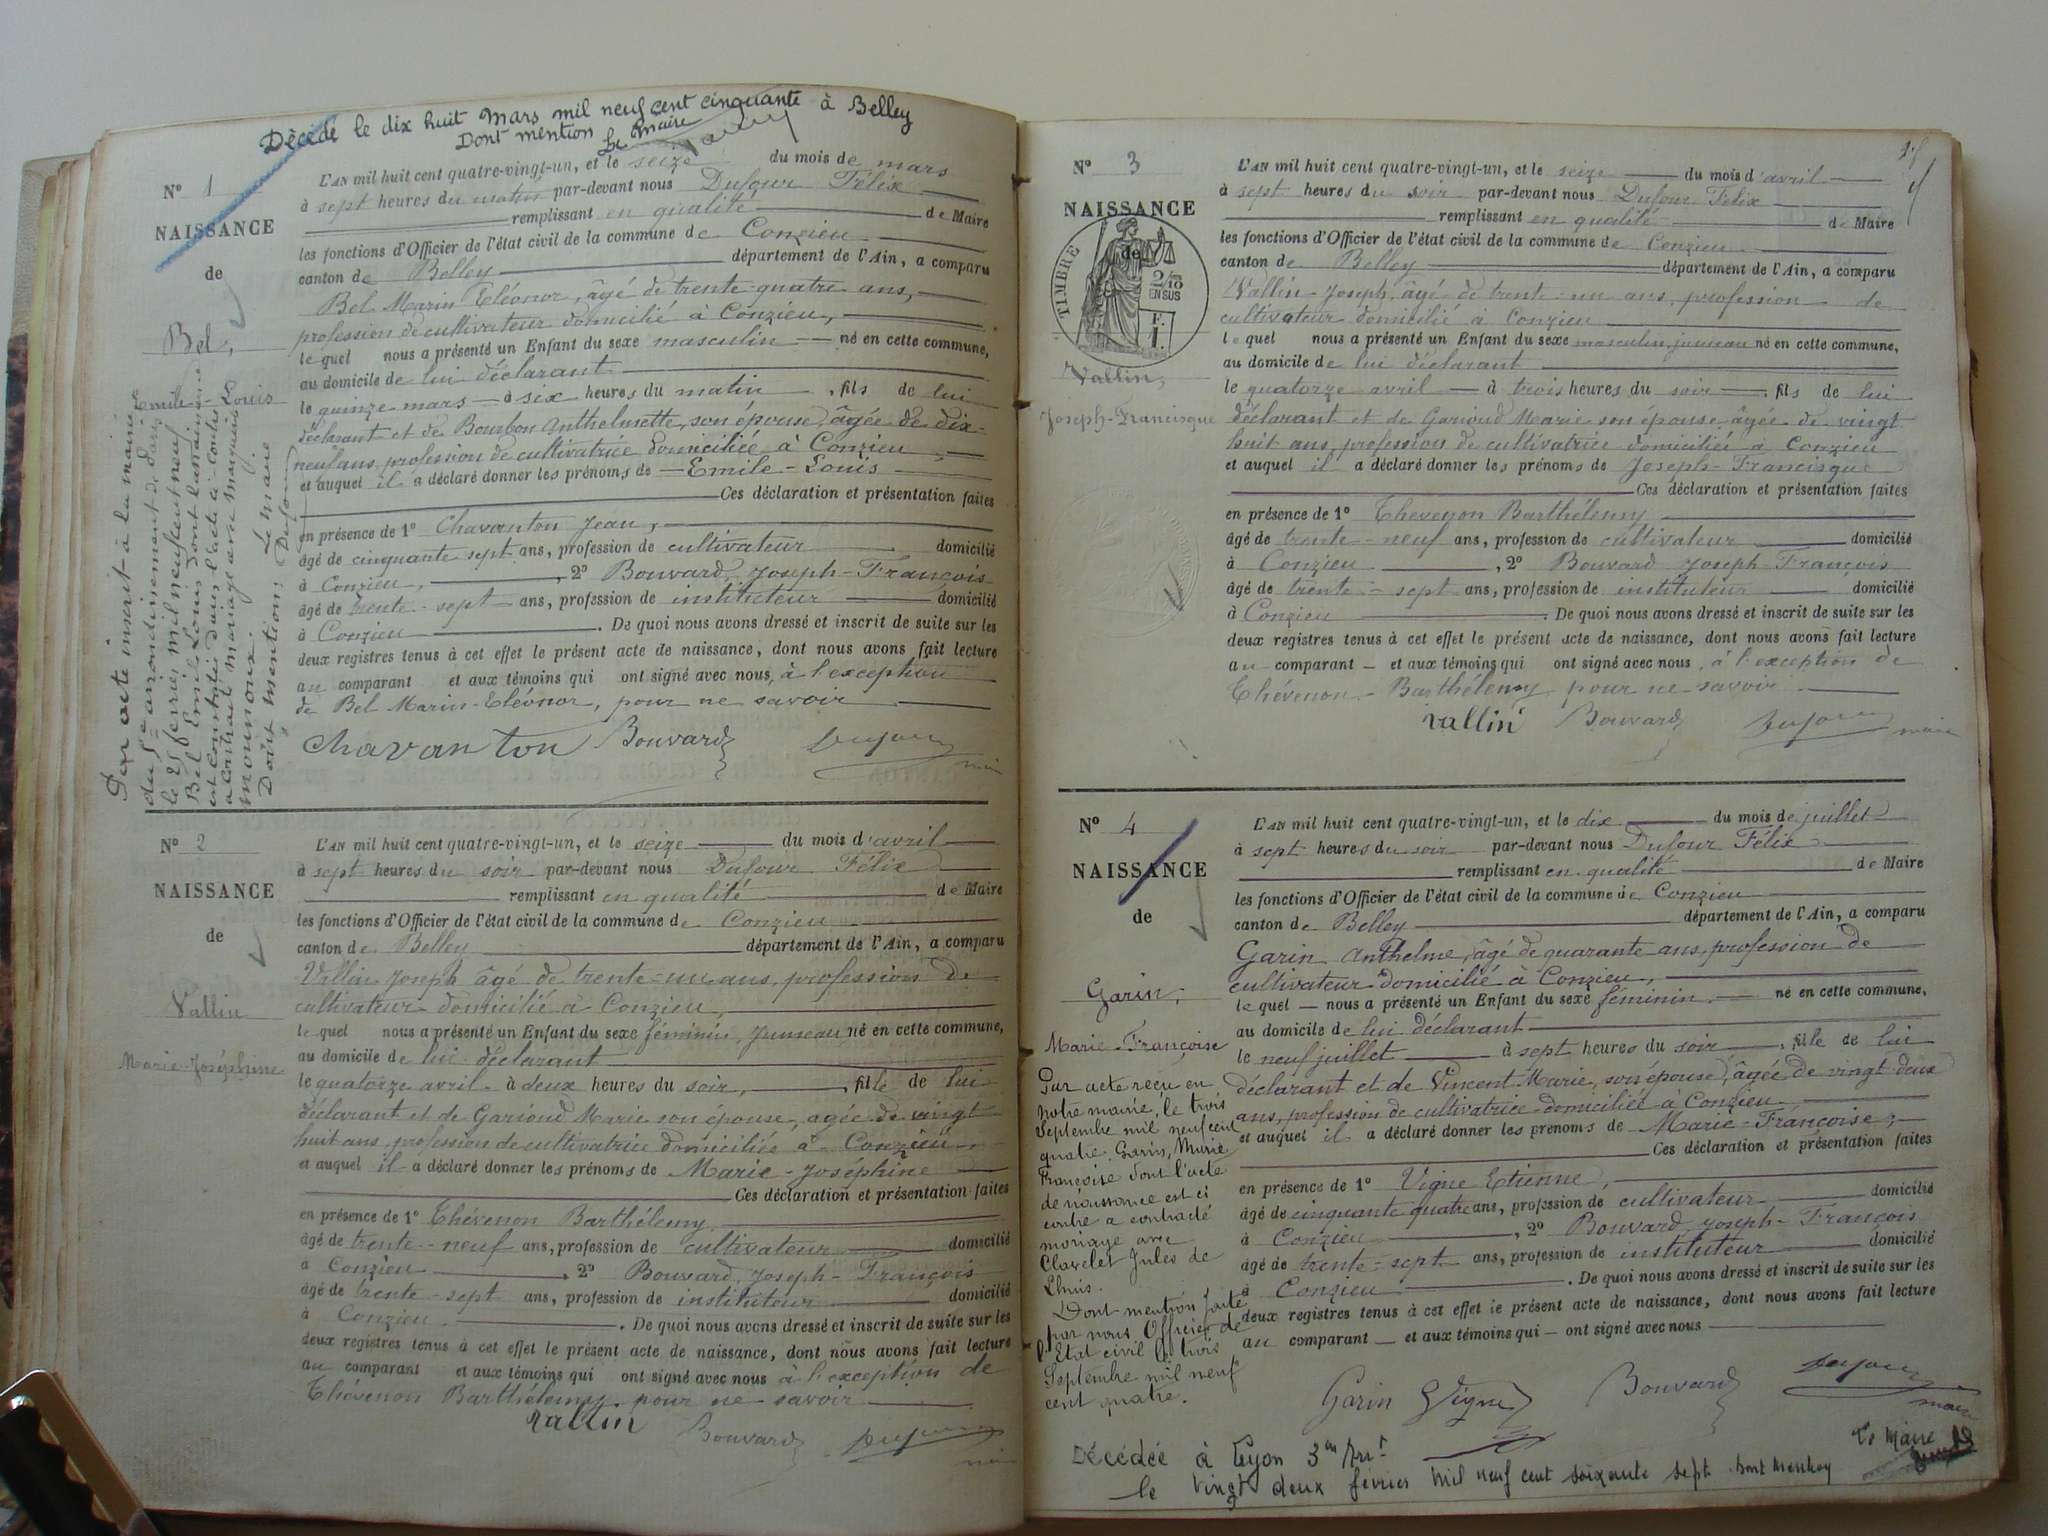 Décédé le dix huit Mars mil neuf cent cinquante à Belley
Dont mention Le Maire
N° 1
NAISSANCE
de
Bel,
Emile-Louis
Par acte inscrit à la mairie
du 5e arrondissement de
le 25 février mil neuf cent neuf
Bel Emile Louis dont la naissance
est constatée dans l'acte ci-contre
a contracté mariage avec Marguerite
Dont mention, Le Maire
Dufour
L'AN mil huit cent quatre-vingt-un, et le seize du mois de mars
à sept heures du matin par-devant nous Dufour Félix
remplissant en qualité de Maire
les fonctions d'Officier de l'état civil de la commune de Conzieu
canton de Belley département de l'Ain, a comparu
Bel Marin Eléonor, âgé de trente-quatre ans,
profession de cultivateur domicilié à Conzieu,
lequel nous a présenté un Enfant du sexe masculin né en cette commune,
au domicile de lui déclarant
le quinze mars à six heures du matin, fils de lui
déclarant et de Bourbon Anthelmette, son épouse, âgée de dix-
neuf ans, profession de cultivatrice domiciliée à Conzieu,
et auquel il a déclaré donner les prénoms de Emile-Louis
Ces déclaration et présentation faites
en présence de 1° Chavanton Jean,
âgé de cinquante sept ans, profession de cultivateur domicilié
à Conzieu, 2° Bouvard, Joseph-François
âgé de trente-sept ans, profession de instituteur domicilié
à Conzieu. De quoi nous avons dressé et inscrit de suite sur les
deux registres tenus à cet effet le présent acte de naissance, dont nous avons fait lecture
au comparant et aux témoins qui ont signé avec nous, à l'exception
de Bel Marin-Eléonor, pour ne savoir
Chavanton Bouvard Dufour
N° 2
NAISSANCE
de
Vallin
Marie-Joséphine
L'AN mil huit cent quatre-vingt-un, et le seize du mois d'avril
à sept heures du soir par-devant nous Dufour Félix
remplissant en qualité de Maire
les fonctions d'Officier de l'état civil de la commune de Conzieu
canton de Belley département de l'Ain, a comparu
Vallin Joseph âgé de trente-un ans, profession de
cultivateur domicilié à Conzieu,
lequel nous a présenté un Enfant du sexe féminin, Jumeau, né en cette commune,
au domicile de lui déclarant
le quatorze avril à deux heures du soir, fille de lui
déclarant et de Garioud Marie son épouse, agée de vingt
huit ans, profession de cultivatrice domiciliés à Conzieu
et auquel il a déclaré donner les prénoms de Marie-Joséphine
Ces déclaration et présentation faites
en présence de 1° Thévenon Barthélemy
âgé de trente-neuf ans, profession de cultivateur domicilié
à Conzieu, 2° Bouvard, Joseph-François
âgé de trente-sept ans, profession de instituteur domicilié
à Conzieu. De quoi nous avons dressé et inscrit de suite sur les
deux registres tenus à cet effet le présent acte de naissance, dont nous avons fait lecture
au comparant et aux témoins qui ont signé avec nous à l'exception de
Thévenon Barthélemy pour ne savoir
Vallin Bouvard Dufour
N° 3
NAISSANCE
de
TIMBRE
2/10
EN SUS
F.
1.
Vallin,
Joseph-Francisque
L'AN mil huit cent quatre-vingt-un, et le seize du mois d'avril
à sept heures du soir par-devant nous Dufour Félix
remplissant en qualité de Maire
les fonctions d'Officier de l'état civil de la commune de Conzieu
canton de Belley département de l'Ain, a comparu
Vallin Joseph, âgé de trente-un ans, profession de
cultivateur domicilié à Conzieu
lequel nous a présenté un Enfant du sexe masculin, jumeau né en cette commune,
au domicile de lui déclarant
le quatorze avril à trois heures du soir, fils de lui
déclarant et de Garioud Marie son épouse, âgée de vingt
huit ans, profession de cultivatrice domiciliée à Conzieu
et auquel il a déclaré donner les prénoms de Joseph-Francisque
Ces déclaration et présentation faites
en présence de 1° Thevenon Barthélemy
âgé de trente-neuf ans, profession de cultivateur domicilié
à Conzieu, 2° Bouvard Joseph-François
âgé de trente-sept ans, profession de instituteur domicilié
à Conzieu. De quoi nous avons dressé et inscrit de suite sur les
deux registres tenus à cet effet le présent acte de naissance, dont nous avons fait lecture
au comparant et aux témoins qui ont signé avec nous, à l'exception de
Thévenon-Barthélemy pour ne savoir
Vallin Bouvard Dufour maire
N° 4
NAISSANCE
de
Garin,
Marie-Françoise
Par acte reçu en
notre mairie, le trois
Septembre mil neuf cent
quatre, Garin, Marie
Françoise dont l'acte
de naissance est ci
contre a contracté
mariage avec
Clavelet Jules de
Lhuis.
Dont mention faite
par nous Officier de
l'Etat civil le trois
Septembre mil neuf
cent quatre.
L'AN mil huit cent quatre-vingt-un, et le dix du mois de juillet
à sept heures du soir par-devant nous Dufour Félix
remplissant en qualité de Maire
les fonctions d'Officier de l'état civil de la commune de Conzieu
canton de Belley département de l'Ain, a comparu
Garin Anthelme, âgé de quarante ans, profession de
cultivateur domicilié à Conzieu,
lequel nous a présenté un Enfant du sexe féminin, né en cette commune,
au domicile de lui déclarant
le neuf juillet à sept heures du soir, fille de lui
déclarant et de Vincent Marie, son épouse, âgée de vingt deux
ans, profession de cultivatrice domiciliée à Conzieu
et auquel il a déclaré donner les prénoms de Marie-Françoise,
Ces déclaration et présentation faites
en présence de 1° Vigne Etienne,
âgé de cinquante quatre ans, profession de cultivateur domicilié
à Conzieu, 2° Bouvard Joseph-François
âgé de trente-sept ans, profession de instituteur domicilié
à Conzieu. De quoi nous avons dressé et inscrit de suite sur les
deux registres tenus à cet effet le présent acte de naissance, dont nous avons fait lecture
au comparant et aux témoins qui ont signé avec nous
Garin Vigne Bouvard Dufour maire
Décédée à Lyon 3em Arrt
le vingt deux février mil neuf cent soixante sept dont mention
Le Maire